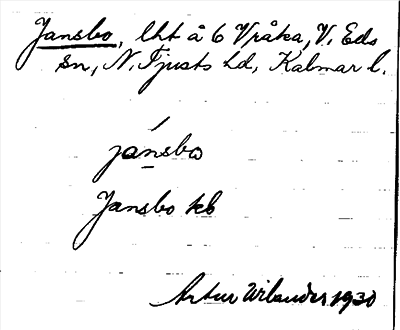 Jansbo, lht å 6 Vråka, V. Eds
sn, N. Tjusts hd, Kalmar l.
jánsbω
Jansbo kb
Artur Wilander 1930